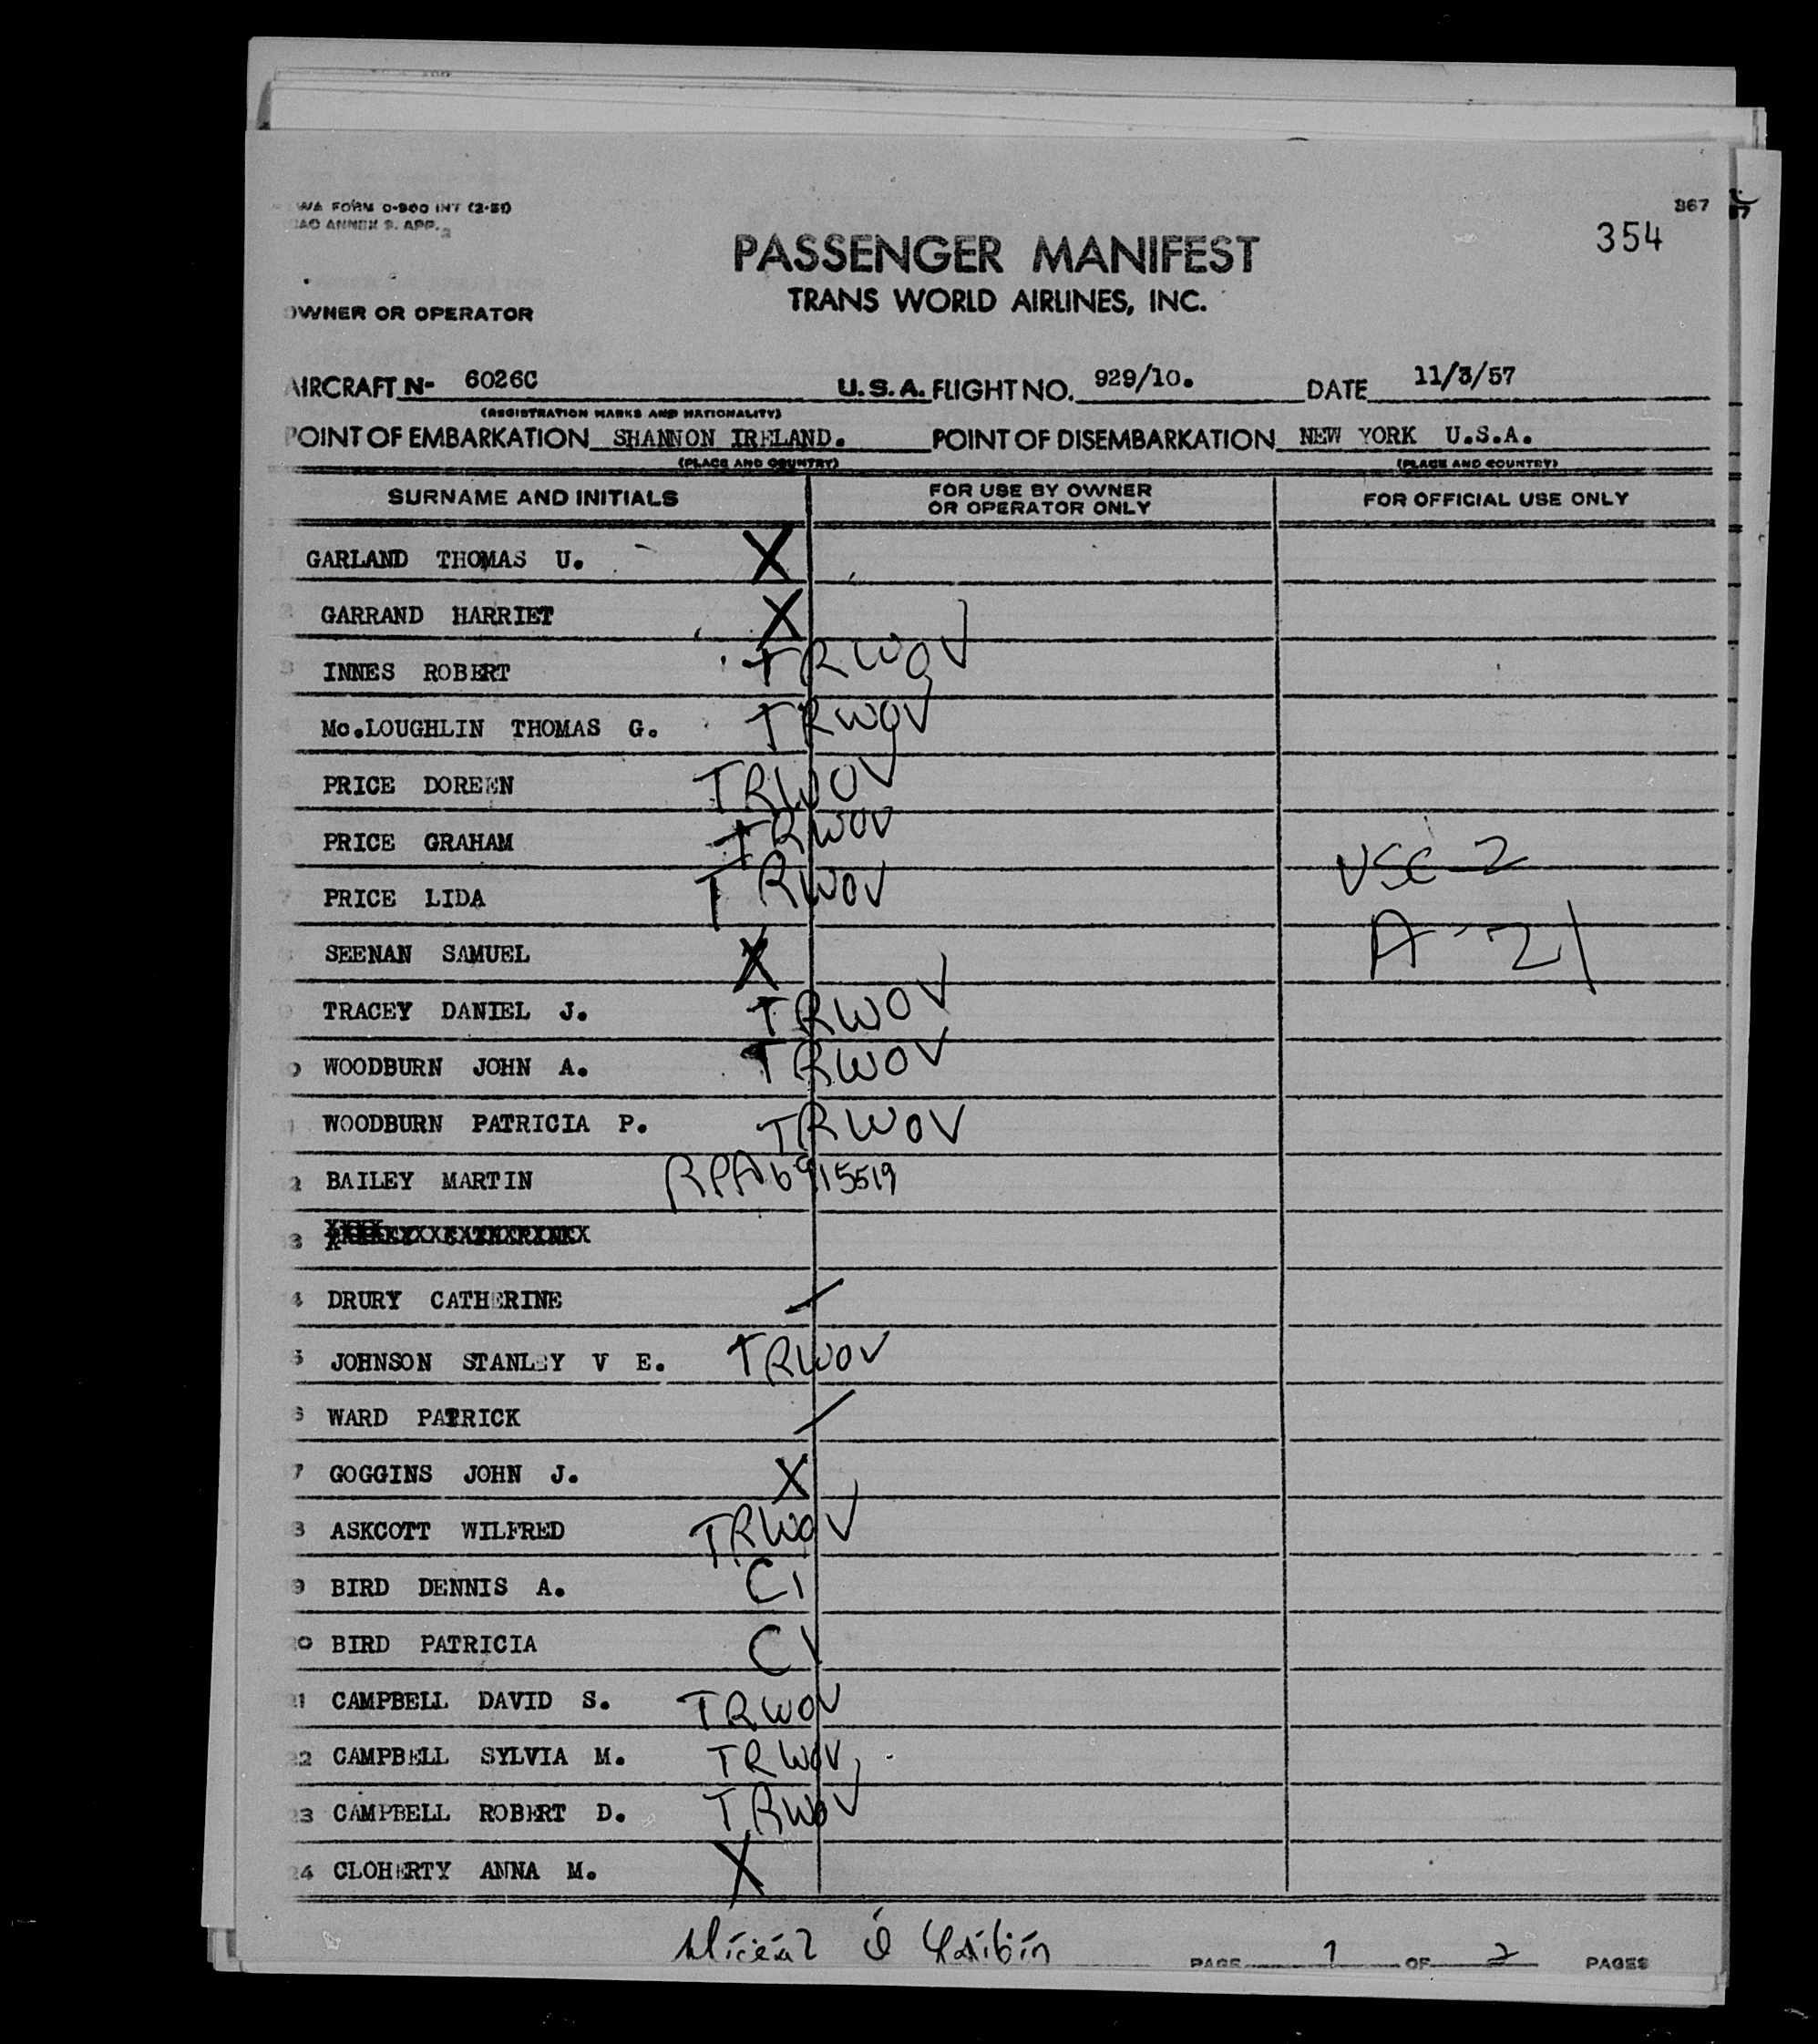 WA FORM 0-900 INT (2-51)
ICAO ANNEX 9. APP. 2
867
354
PASSENGER MANIFEST
TRANS WORLD AIRLINES, INC.
OWNER OR OPERATOR
AIRCRAFT N- 6026C U.S.A. FLIGHT NO. 929/10. DATE 11/3/57
(REGISTRATION MARKS AND NATIONALITY)
POINT OF EMBARKATION SHANNON IRELAND. POINT OF DISEMBARKATION NEW YORK U.S.A.
(PLACE AND COUNTRY) (PLACE AND COUNTRY)
SURNAME AND INITIALS FOR USE BY OWNER OR OPERATOR ONLY FOR OFFICIAL USE ONLY
GARLAND THOMAS U. X
2 GARRAND HARRIET X
3 INNES ROBERT TRWOV
Mc.LOUGHLIN THOMAS G. TRWOV
PRICE DOREEN TRWOV
PRICE GRAHAM TRWOV USC-2
7 PRICE LIDA TRWOV
SEENAN SAMUEL X A-21
TRACEY DANIEL J. TRWOV
0 WOODBURN JOHN A. TRWOV
1 WOODBURN PATRICIA P. TRWOV
2 BAILEY MARTIN RPA6915519
3
4 DRURY CATHERINE
5 JOHNSON STANLEY V E. TRWOV
6 WARD PATRICK
7 GOGGINS JOHN J. X
8 ASKCOTT WILFRED TRWOV
9 BIRD DENNIS A. C1
20 BIRD PATRICIA C1
21 CAMPBELL DAVID S. TRWOV
22 CAMPBELL SYLVIA M. TRWOV
23 CAMPBELL ROBERT D. TRWOV
24 CLOHERTY ANNA M. X
Mícéal Ó
PAGE 1 OF 2 PAGES